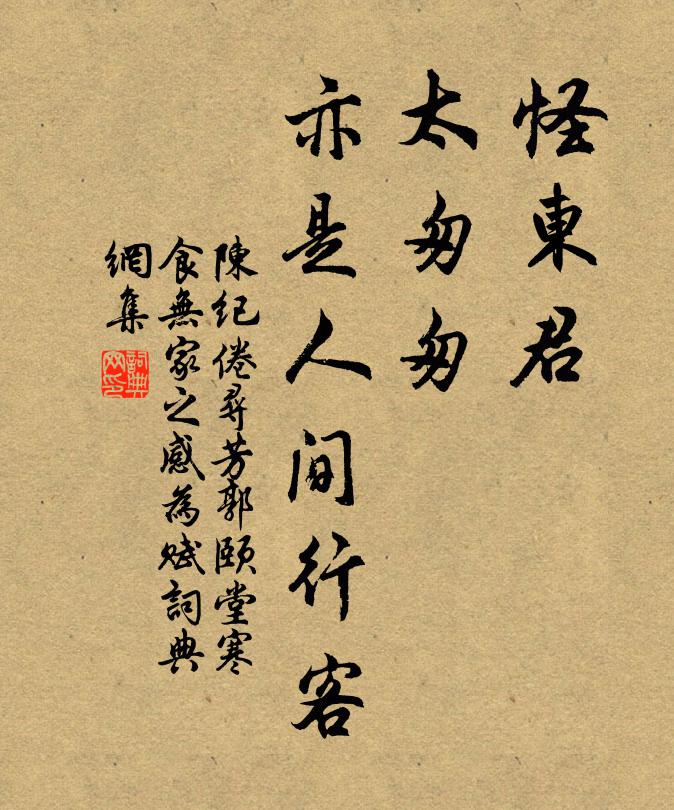 怪東君
太匆匆
亦是人間行客
陳紀倦尋芳郭頤堂寒
食無家之感為賦詞典
網集
詞典網印